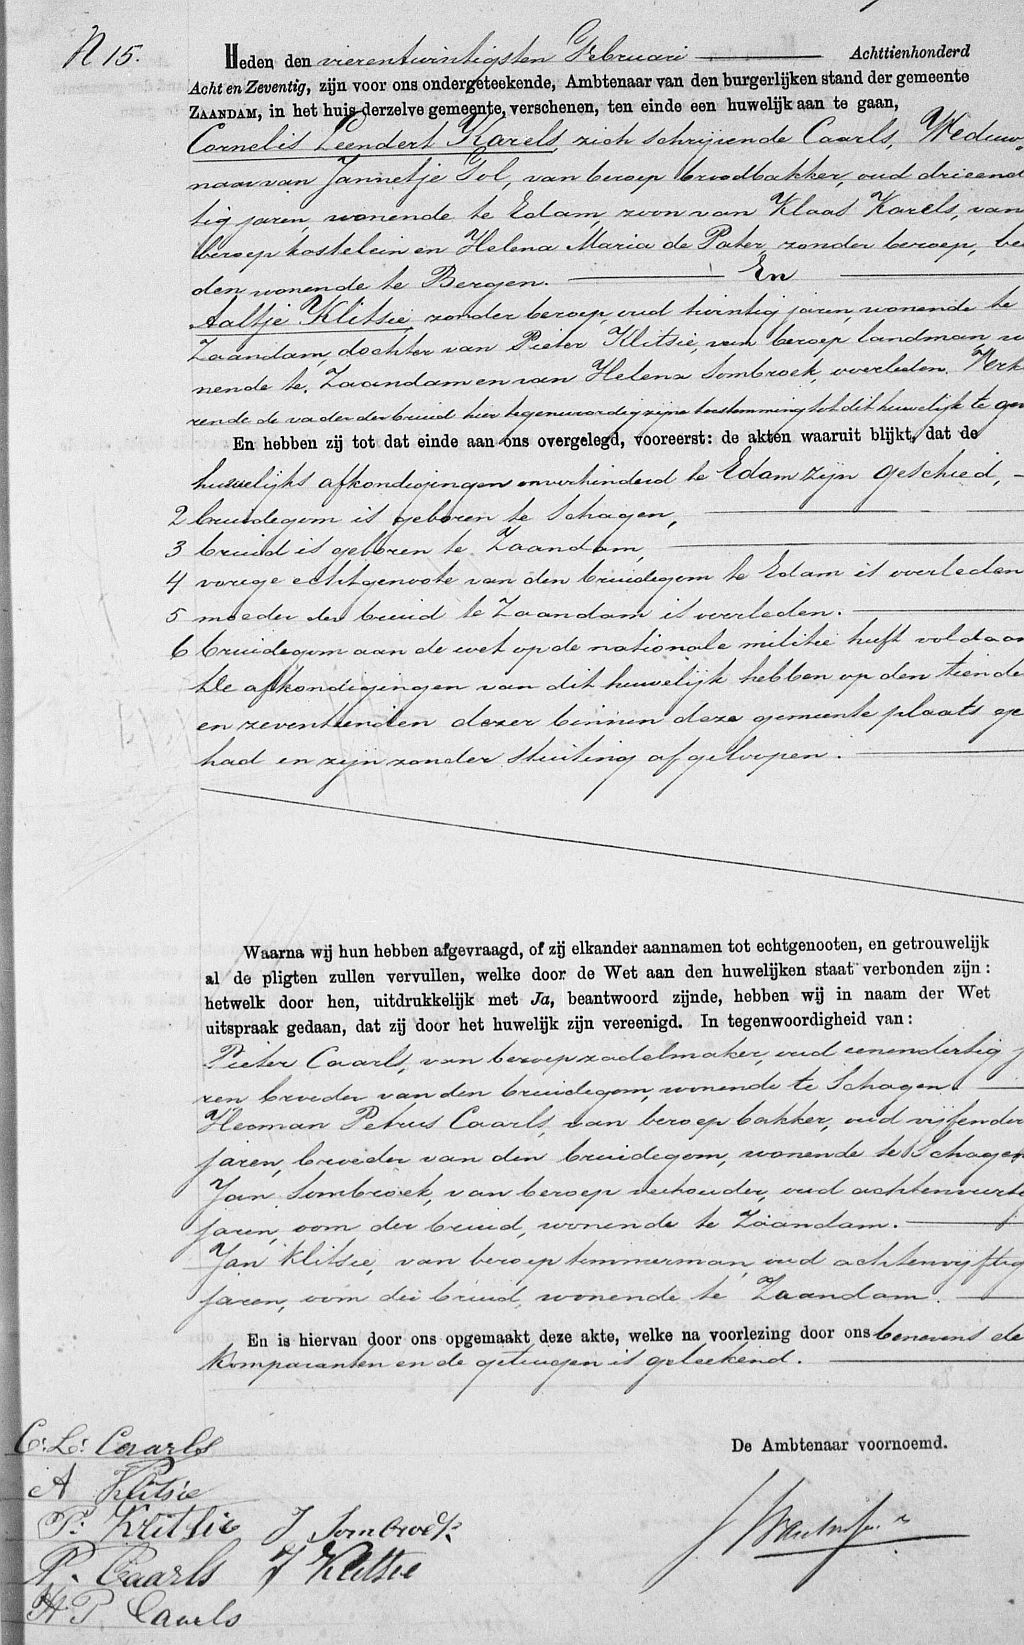 N 15.
Heden den vierentwintigsten Februari Achttienhonderd
Acht en Zeventig, zijn voor ons ondergeteekende, Ambtenaar van den burgerlijken stand der gemeente
ZAANDAM, in het huis derzelve gemeente, verschenen, ten einde een huwelijk aan te gaan,
Cornelis Leendert Karels, zich schrijvende Caarls, Weduw-
naar van Jannetje Tol, van beroep broodbakker, oud drieend
tig jaren, wonende te Edam, zoon van Klaas Karels, van
beroep kastelein en Helena Maria de Pater, zonder beroep, bei
den wonende te Bergen. En
Aaltje Klitsie, zonder beroep, oud twintig jaren, wonende te
Zaandam, dochter van Pieter Klitsie, van beroep landman wo
nende te Zaandam en van Helena Sombroek, overleden. Verk
rende de vader der bruid hier tegenwoordig zijne toestemming tot dit huwelijk te gev
En hebben zij tot dat einde aan ons overgelegd, vooreerst: de akten waaruit blijkt, dat de
huwelijks afkondigingen onverhinderd te Edam zijn geschied,
2 bruidegom is geboren te Schagen,
3 bruid is geboren te Zaandam,
4 vorige echtgenoote van den bruidegom te Edam is overleden
5 moeder der bruid te Zaandam is overleden.
6 bruidegom aan de wet op de nationale militie heeft voldaan
De afkondigingen van dit huwelijk hebben op den tiende
en zeventienden dezer binnen deze gemeente plaats ge
had en zijn zonder stuiting afgeloopen.
Waarna wij hun hebben afgevraagd, of zij elkander aannamen tot echtgenooten, en getrouwelijk
al de pligten zullen vervullen, welke door de Wet aan den huwelijken staat verbonden zijn:
hetwelk door hen, uitdrukkelijk met Ja, beantwoord zijnde, hebben wij in naam der Wet
uitspraak gedaan, dat zij door het huwelijk zijn vereenigd. In tegenwoordigheid van:
Pieter Caarls, van beroep zadelmaker, oud eenendertig j
ren broeder van den bruidegom, wonende te Schagen.
Herman Petrus Caarls, van beroep bakker, oud vijfender
jaren, broeder van den bruidegom, wonende te Schagen
Jan Sombroek, van beroep veehouder, oud achtenveerti
jaren, oom der bruid, wonende te Zaandam.
Jan Klitsie, van beroep timmerman, oud achtenvijftig
jaren, oom der bruid, wonende te Zaandam.
En is hiervan door ons opgemaakt deze akte, welke na voorlezing door ons benevens de
Komparanten en de getuigen is geteekend.
C: L: Caarls
A Klitsie
P: Klitsie J Sombroek
P. Caarls J Klitsie
H P Caarls
De Ambtenaar voornoemd.